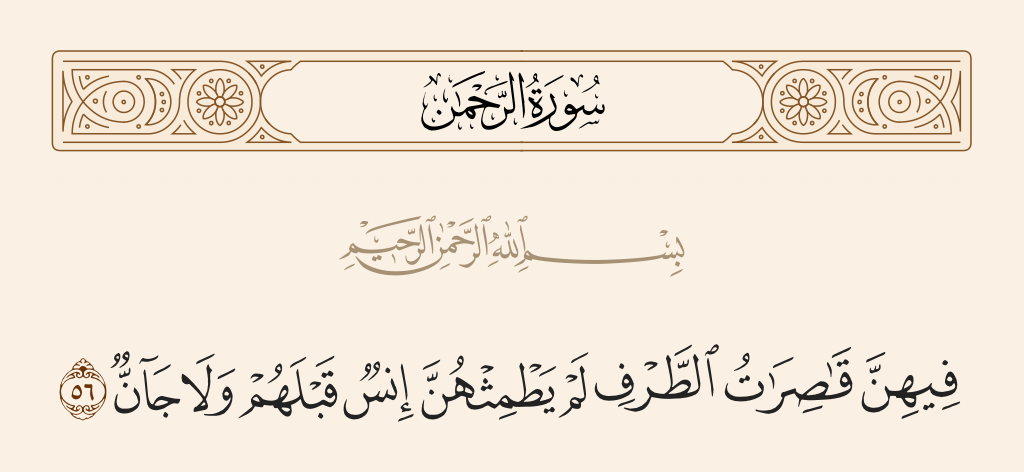 سُورَةُ الرَّحْمَٰن
بِسْمِ ٱللَّهِ ٱلرَّحْمَٰنِ ٱلرَّحِيمِ
فِيهِنَّ قَٰصِرَٰتُ ٱلطَّرْفِ لَمْ يَطْمِثْهُنَّ إِنسٌ قَبْلَهُمْ وَلَا جَآنٌّ ٥٦